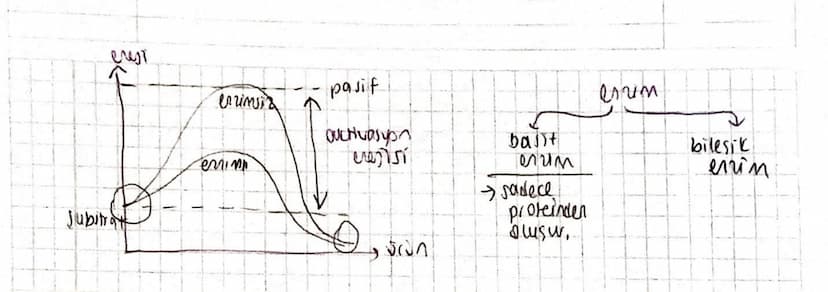 enerji
pasif
enzimsiz
aktivasyon
enerjisi
enzimli
substrat
ürün
enzim
basit
enzim
→ sadece
proteinden
oluşur.
bileşik
enzim